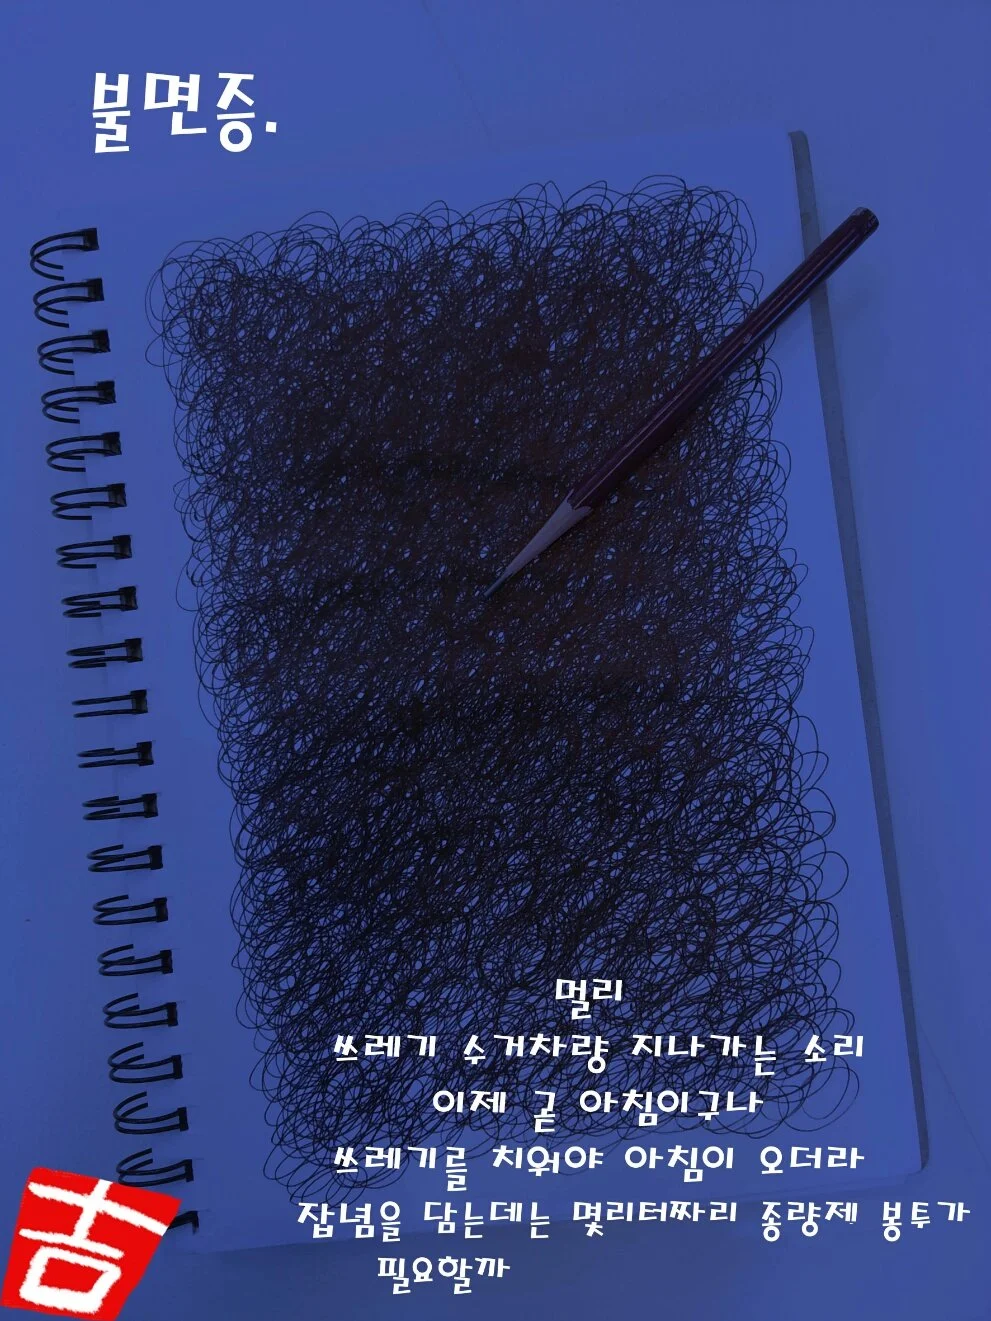 불면증.
멀리
쓰레기 수거차량 지나가는 소리
이제 곧 아침이구나
쓰레기를 치워야 아침이 오더라
잡념을 담는데는 몇리터짜리 종량제 봉투가
필요할까
吉